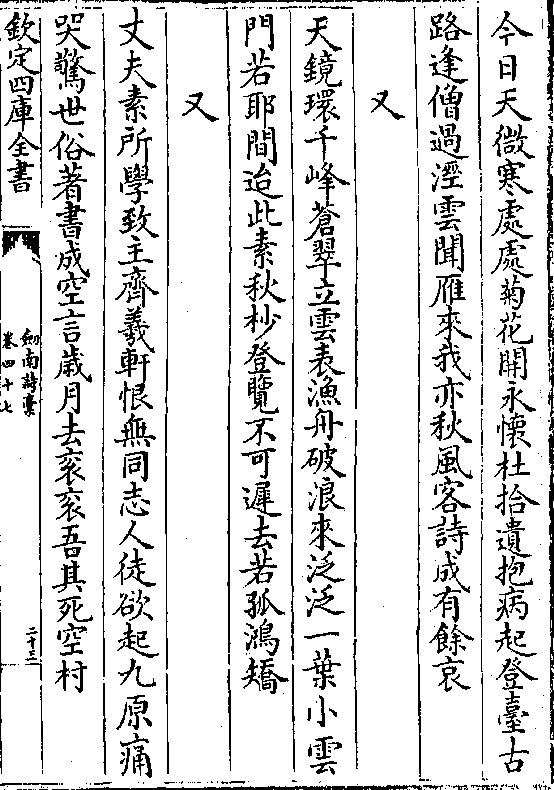 今日天微寒處處菊花開永懷杜拾遺抱病起登臺古
路逢僧過溼雲聞雁來我亦秋風客詩成有餘哀
又
天鏡環千峰蒼翠立雲表漁舟破浪來泛泛一葉小雲
門若耶間迨此素秋杪登覽不可遲去若孤鴻矯
又
丈夫素所學致主齊羲軒恨無同志人徒欲起九原痛
哭驚世俗著書成空言歲月去衮衮吾其死空村
欽定四庫全書
劍南詩藁
卷四十七
二十三